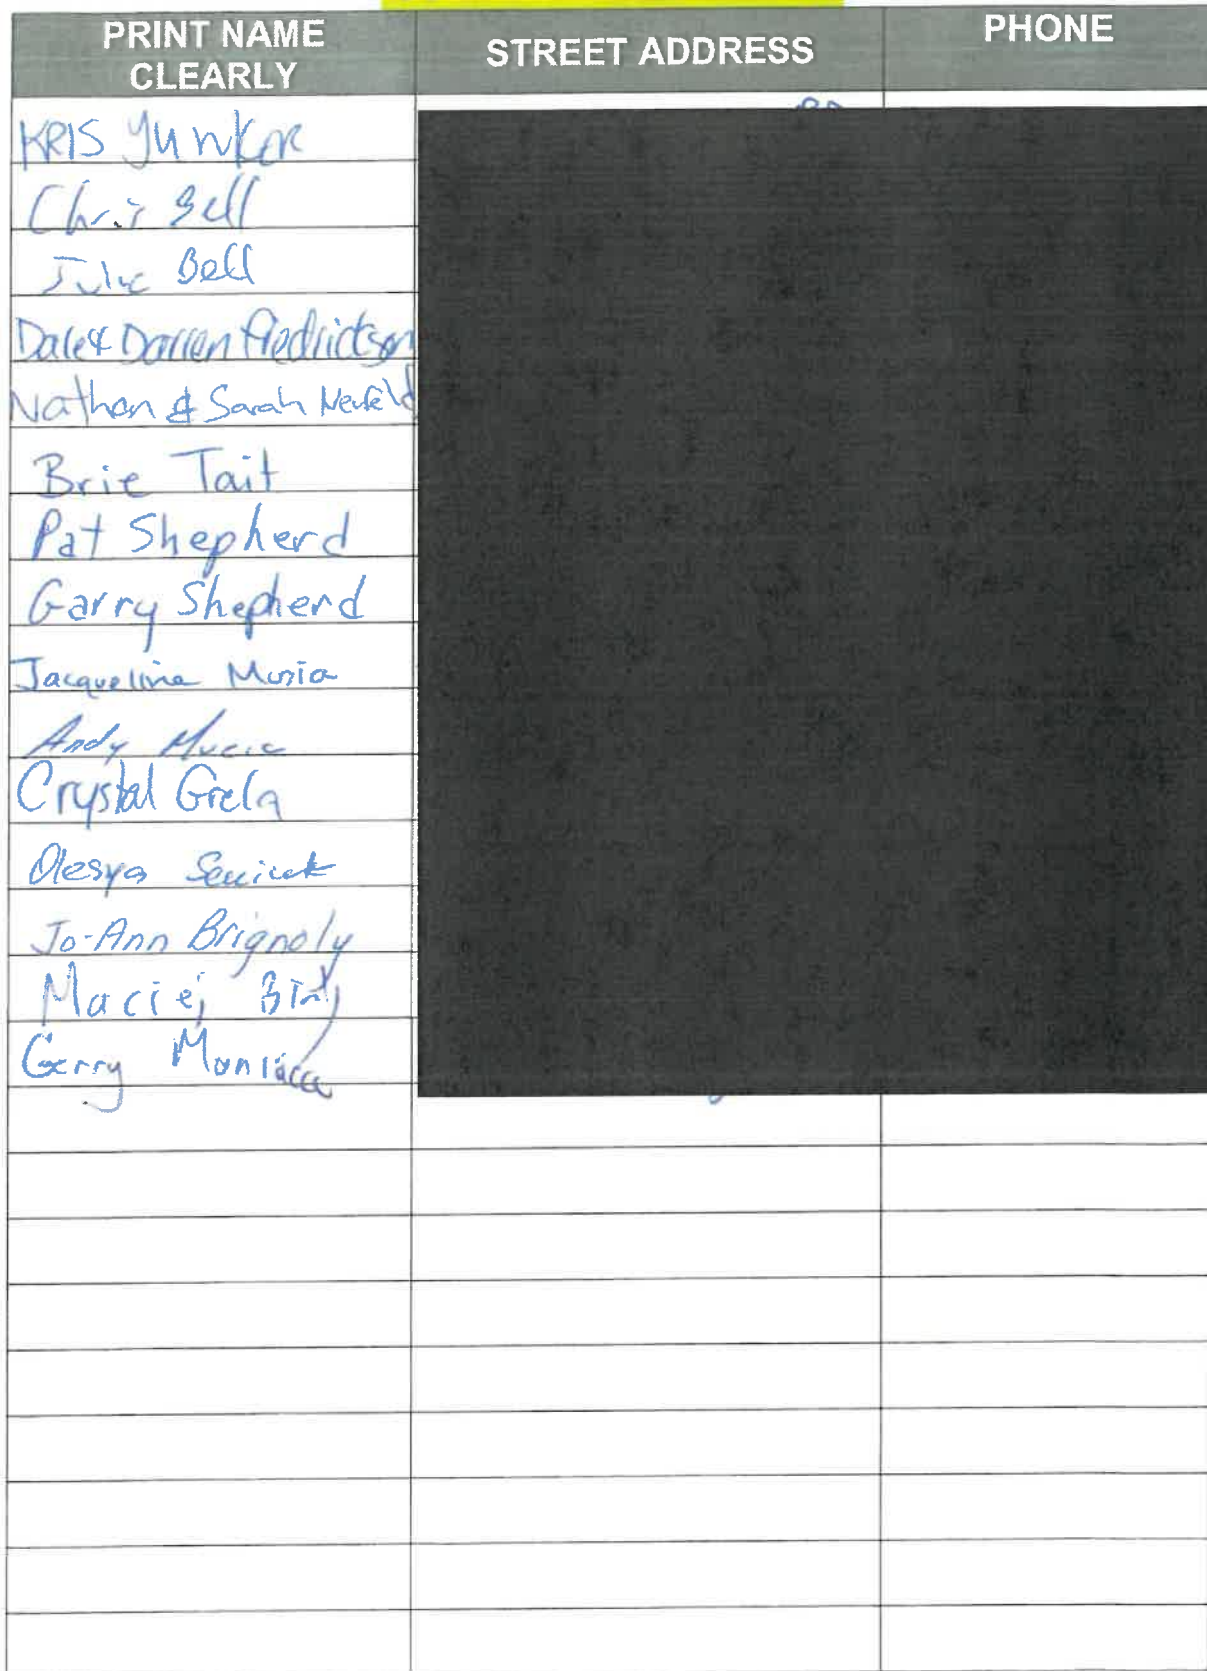 PRINT NAME
CLEARLY
STREET ADDRESS
PHONE
KRIS Yunker
Chris Bell
Julie Bell
Dale & Darren Fredrickson
Nathan & Sarah Neufeld
Brie Tait
Pat Shepherd
Garry Shepherd
Jacqueline
Andy
Crystal Grela
Olesya
Jo-Ann Brignoly
Maciej
Gerry